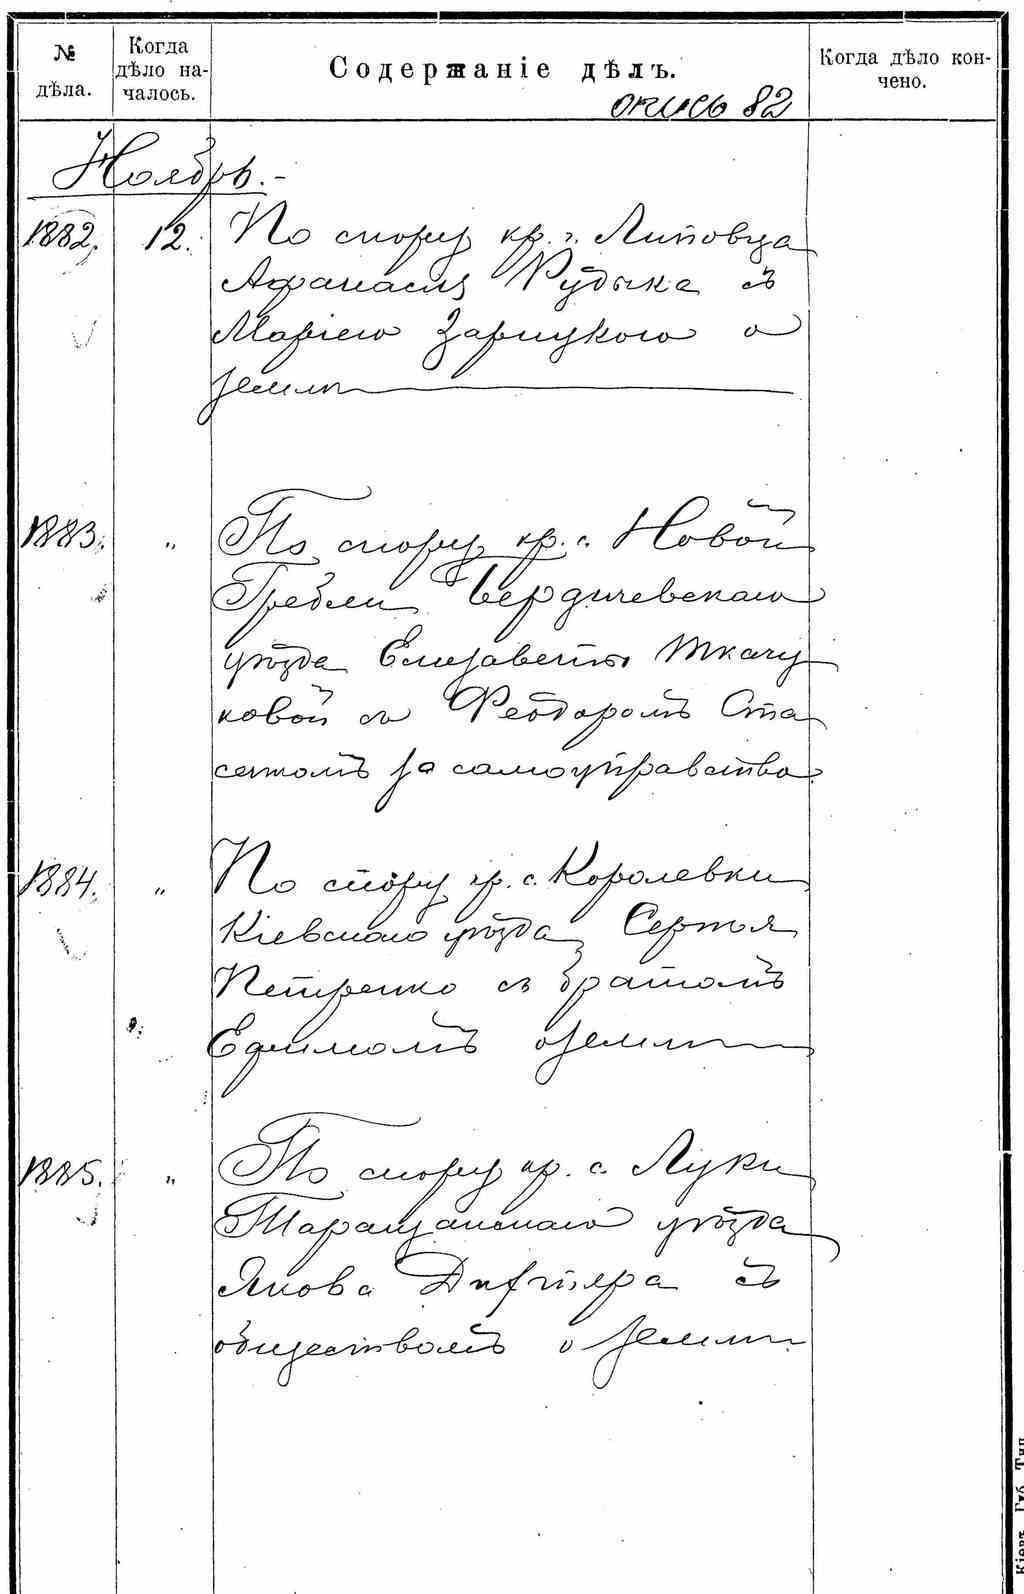 № дѣла.
Когда дѣло на-
чалось.
Содержаніе дѣлъ.
Когда дѣло кон-
чено.
опись 82
Ноябрь.-
1882. 12. По спору кр. г. Липовца
Афанасія Рудыка съ
Маріею Зарицкою о
землѣ
1883. " По спору кр. с. Новой
Гребли Бердичевскаго
уѣзда Елизаветы Ткачу
ковой съ Феодоромъ Ста
сюкомъ за самоуправство.
1884. " По спору кр. с. Королевки
Кіевскаго уѣзда Сергѣя
Петренко съ братомъ
Ефимомъ о землѣ
1885. " По спору кр. с. Луки
Таращанскаго уѣзда
Якова съ
обществомъ о землѣ.
Кіевъ. Губ. Тип.